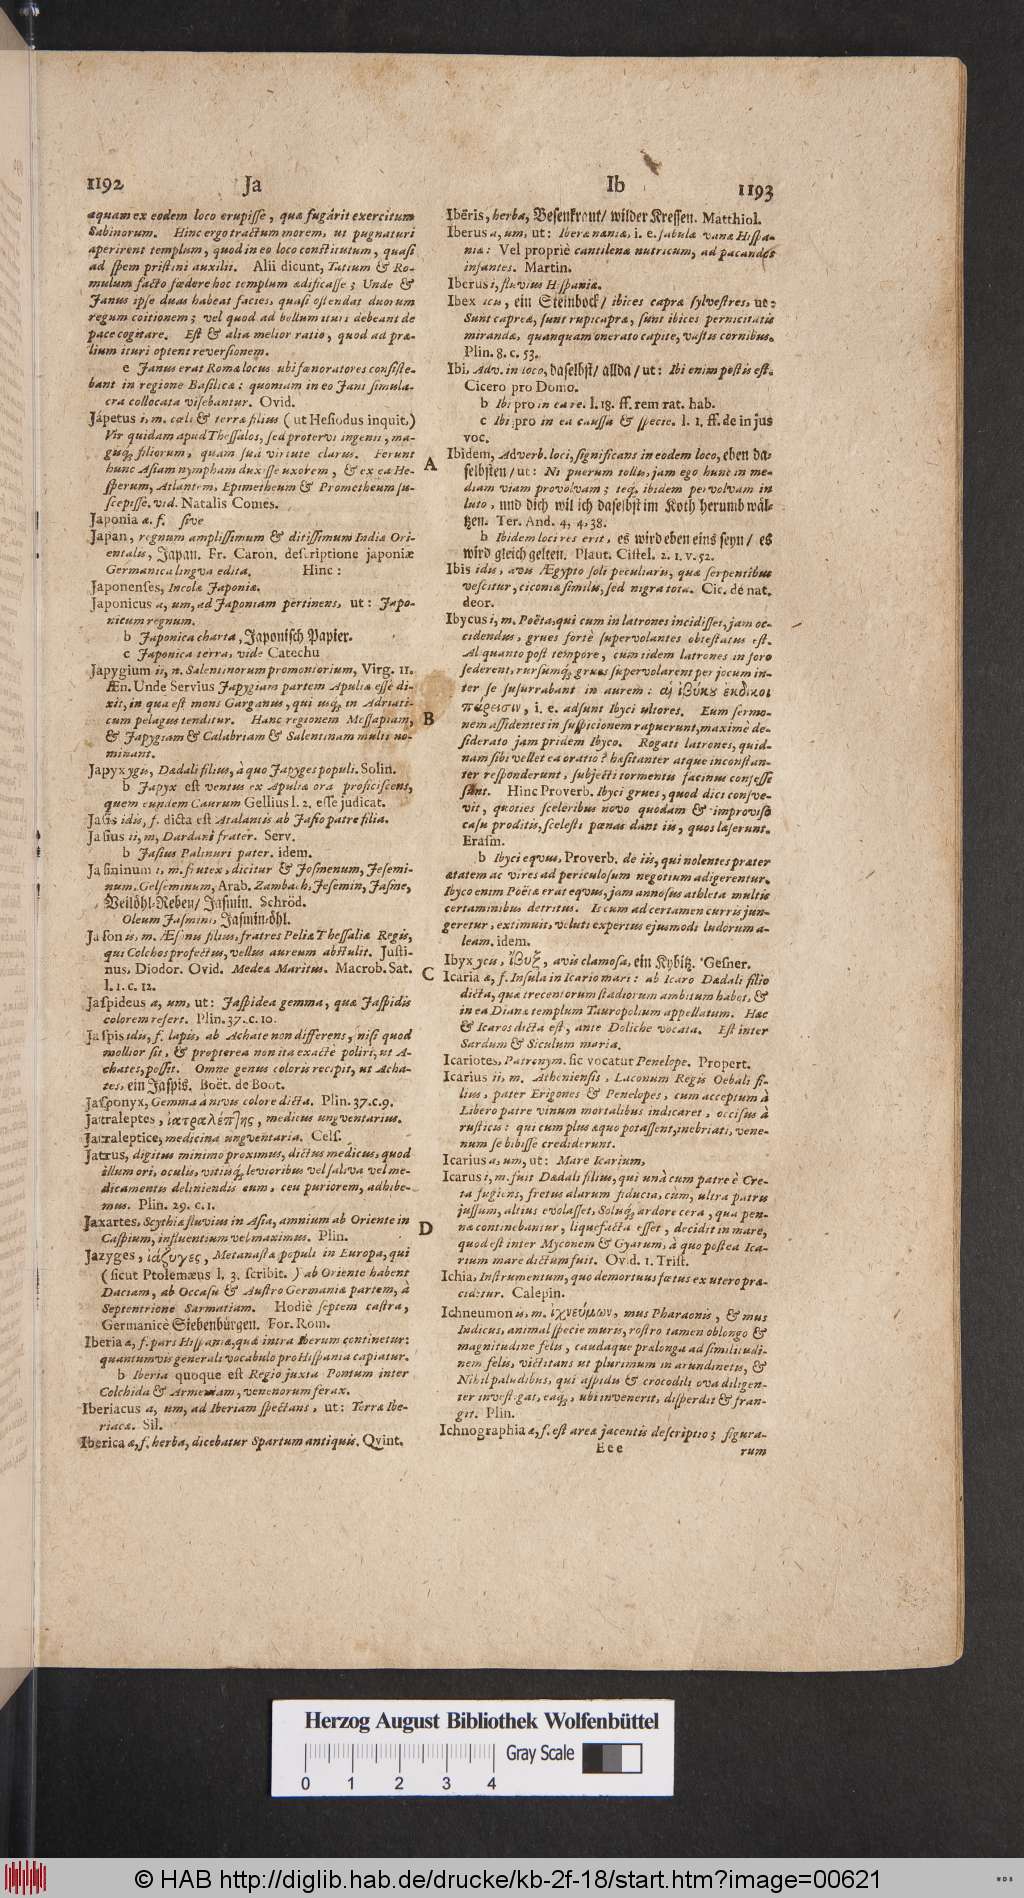 1192 Ja
aquam ex eodem loco erupisse, quæ fugârit exercitum
Sabinorum. Hinc ergo tractum morem, ut pugnaturi
aperirent templum, quod in eo loco constitutum, quasi
ad spem pristini auxilii. Alii dicunt, Tatium & Ro-
mulum facto fœdere hoc templum ædificasse; Unde &
Janus ipse duas habeat facies, quasi ostendat duorum
regum coitionem; vel quod ad bellum ituri debeant de
pace cogitare. Est & alia melior ratio, quod ad præ-
lium ituri optent reversionem.
e Janus erat Romæ locus ubi fœnoratores consiste-
bant in regione Basilica: quoniam in eo Jani simula-
cra collocata visebantur. Ovid.
Jápetus i, m. cœli & terræ filius (ut Hesiodus inquit,)
Vir quidam apud Thessalos, sed protervi ingenii, ma-
gisq; filiorum, quam suâ virtute clarus. Ferunt
hunc Asiam nympham duxisse uxorem, & ex ea He-
sperum, Atlantem, Epimetheum & Prometheum su-
scepisse. vid. Natalis Comes.
Japonia æ. f. sive
Japan, regnum amplissimum & ditissimum Indiæ Ori-
entalis, Japan. Fr. Caron. descriptione japoniæ
Germanica lingva edita. Hinc:
Japonenses, Incolæ Japoniæ.
Japonicus a, um, ad Japoniam pertinens, ut: Japo-
nicum regnum.
b Japonica charta, Japonisch Papier.
c Japonica terra, vide Catechu
Japygium ii, n. Salentinorum promontorium, Virg. 11.
Æn. Unde Servius Japygiam partem Apuliæ esse di-
xit, in qua est mons Garganus, qui usq; in Adriati-
cum pelagus tenditur. Hanc regionem Messapiam,
& Japygiam & Calabriam & Salentinam multi no-
minant.
Japyx ygis, Dædali filius, à quo Japyges populi. Solin.
b Japyx est ventus ex Apuliæ ora proficiscens,
quem eundem Caurum Gellius l. 2. esse judicat.
Jasis idis, f. dicta est Atalantis ab Jasio patre filia.
Jasius ii, m, Dardani frater. Serv.
b Jasius Palinuri pater. idem.
Jasminum i, m. frutex, dicitur & Josmenum, Jesemi-
num, Gelseminum, Arab. Zambach, Jesemin, Jasme,
Veilöhl-Reben/ Jasmin. Schröd.
Oleum Jasmini, Jasminöhl.
Jason is, m. Æsonis filius, fratres Peliæ Thessaliæ Regis,
qui Colchos profectus, vellus aureum abstulit. Justi-
nus, Diodor. Ovid. Medeæ Maritus. Macrob. Sat.
l. 1. c. 12.
Jaspideus a, um, ut: Jaspidea gemma, quæ Jaspidis
colorem refert. Plin. 37. c. 10.
Jaspis idis, f. lapis, ab Achate non differens, nisi quod
mollior sit, & propterea non ita exactè poliri, ut A-
chates, possit. Omne genus coloris recipit, ut Acha-
tes, ein Jaspis. Boët. de Boot.
Jasponyx, Gemma à nivis colore dicta. Plin. 37. c. 9.
Jatraleptes, ἰατραλέπτης, medicus ungventarius.
Jatraleptice, medicina ungventaria. Cels.
Jatrus, digitus minimo proximus, dictus medicus, quod
illum ori, oculis, vitiisq; levioribus vel saliva vel me-
dicamentis deliniendis cum, ceu puriorem, adhibe-
mus. Plin. 29. c. 1.
Jaxartes, Scythiæ fluvius in Asia, amnium ab Oriente in
Caspium, influentium vel maximus. Plin.
Jazyges, ἰάζυγες, Metanastæ populi in Europa, qui
(sicut Ptolemæus l. 3. scribit.) ab Oriente habent
Daciam, ab Occasu & Austro Germaniæ partem, à
Septentrione Sarmatiam. Hodiè septem castra,
Germanicè Siebenbürgen. For. Rom.
Iberia æ, f. pars Hispaniæ, quæ intra Iberum continetur:
quantumvis generali vocabulo pro Hispania capiatur.
b Iberia quoque est Regio juxta Pontum inter
Colchida & Armeniam, venenorum ferax.
Iberiacus a, um, ad Iberiam spectans, ut: Terræ Ibe-
riacæ. Sil.
Iberica æ, f. herba, dicebatur Spartum antiquis. Qvint.
A
B
C
D
Ib 1193
Ibēris, herba, Besenkraut/ wilder Kressen. Matthiol.
Iberus a, um, ut: Iberæ næniæ, i. e. fabulæ vanæ Hispa-
niæ: Vel propriè cantilenæ nutricum, ad pacandos
infantes. Martin.
Iberus i, fluvius Hispaniæ.
Ibex icis, ein Steinbock/ ibices capræ sylvestres, ut:
Sunt capreæ, sunt rupicapræ, sunt ibices pernicitatis
mirandæ, quanquam onerato capite, vastis cornibus.
Plin. 8. c. 53.
Ibi, Adv. in loco, daselbst/ allda/ ut: Ibi enim postis est.
Cicero pro Domo.
b Ibi pro in ea re. l. 18. ff. rem rat. hab.
c Ibi pro in ea caussa & specie. l. 1. ff. de in jus
voc.
Ibidem, Adverb. loci, significans in eodem loco, eben da-
selbsten/ ut: Ni puerum tollis, jam ego hunc in me-
diam viam provolvam; teq; ibidem pervolvam in
luto, und dich wil ich daselbst im Koth herumb wäl-
tzen. Ter. And. 4, 4, 38.
b Ibidem loci res erit, es wird eben eins seyn/ es
wird gleich gelten. Plaut. Cistel. 2. 1. v. 52.
Ibis idis, avis Ægypto soli peculiaris, quæ serpentibus
vescitur, ciconiæ similis, sed nigra tota. Cic. de nat.
deor.
Ibycus i, m. Poëta, qui cum in latrones incidisset, jam oc-
cidendus, grues fortè supervolantes obtestatus est.
Aliquanto post tempore, cum iidem latrones in foro
sederent, rursumq; grues supervolarent per jocum in-
ter se susurrabant in aurem: αἱ ἰβύκου ἔκδικοι
πάρεισιν, i. e. adsunt Ibyci ultores. Eum sermo-
nem assidentes in suspicionem rapuerunt, maximè de-
siderato jam pridem Ibyco. Rogati latrones, quid-
nam sibi vellet ea oratio? hæsitanter atque inconstan-
ter responderunt, subjecti tormentis facinus confesse
sunt. Hinc Proverb. Ibyci grues, quod dici consve-
vit, quoties sceleribus novo quodam & improviso
casu proditis, scelesti pœnas dant iis, quos læserunt.
Erasm.
b Ibyci eqvus, Proverb. de iis, qui nolentes præter
ætatem ac vires ad periculosum negotium adigerentur.
Ibyco enim Poëtæ erat eqvus, jam annosus athleta multis
certaminibus detritus. Is cum ad certamen curris jun-
geretur, extimuit, veluti expertus ejusmodi ludorum a-
leam. idem.
Ibyx ycis, ἴβυξ, avis clamosa, ein Kybitz. Gesner.
Icaria æ, f. Insula in Icario mari: ab Icaro Dædali filio
dicta, quæ trecentorum stadiorum ambitum habet, &
in ea Dianæ templum Tauropolium appellatum. Hæc
& Icaros dicta est, ante Doliche vocata. Est inter
Sardum & Siculum maria.
Icariotes, Patronym. sic vocatur Penelope. Propert.
Icarius ii, m. Atheniensis, Laconum Regis Oebali fi-
lius, pater Erigones & Penelopes, cum acceptum à
Libero patre vinum mortalibus indicaret, occisus à
rusticis: qui cum plus æquo potassent, inebriati, vene-
num se bibisse crediderunt.
Icarius a, um, ut: Mare Icarium.
Icarus i, m. fuit Dædali filius, qui unà cum patre è Cre-
ta fugiens, fretus alarum fiducia, cum, ultra patris
jussum, altius evolasset, Solisq; ardore cera, qua pen-
næ continebantur, liquefacta esset, decidit in mare,
quod est inter Myconem & Gyarum, à quo postea Ica-
rium mare dictum fuit. Ovid. 1. Trist.
Ichia, Instrumentum, quo demortuus fœtus ex utero præ-
ciditur. Calepin.
Ichneumon is, m. ἰχνεύμων, mus Pharaonis, & mus
Indicus, animal specie muris, rostro tamen oblongo &
magnitudine felis, caudaque prælonga ad similitudi-
nem felis, victitans ut plurimum in arundinetis, &
Nihil paludibus, qui aspidis & crocodili ova diligen-
ter investigat, eaq; ubi invenerit, disperdit & fran-
git. Plin.
Ichnographia æ, f. est areæ jacentis descriptio; figura-
Eee rum
Herzog August Bibliothek Wolfenbüttel
Gray Scale
0 1 2 3 4
© HAB http://diglib.hab.de/drucke/kb-2f-18/start.htm?image=00621